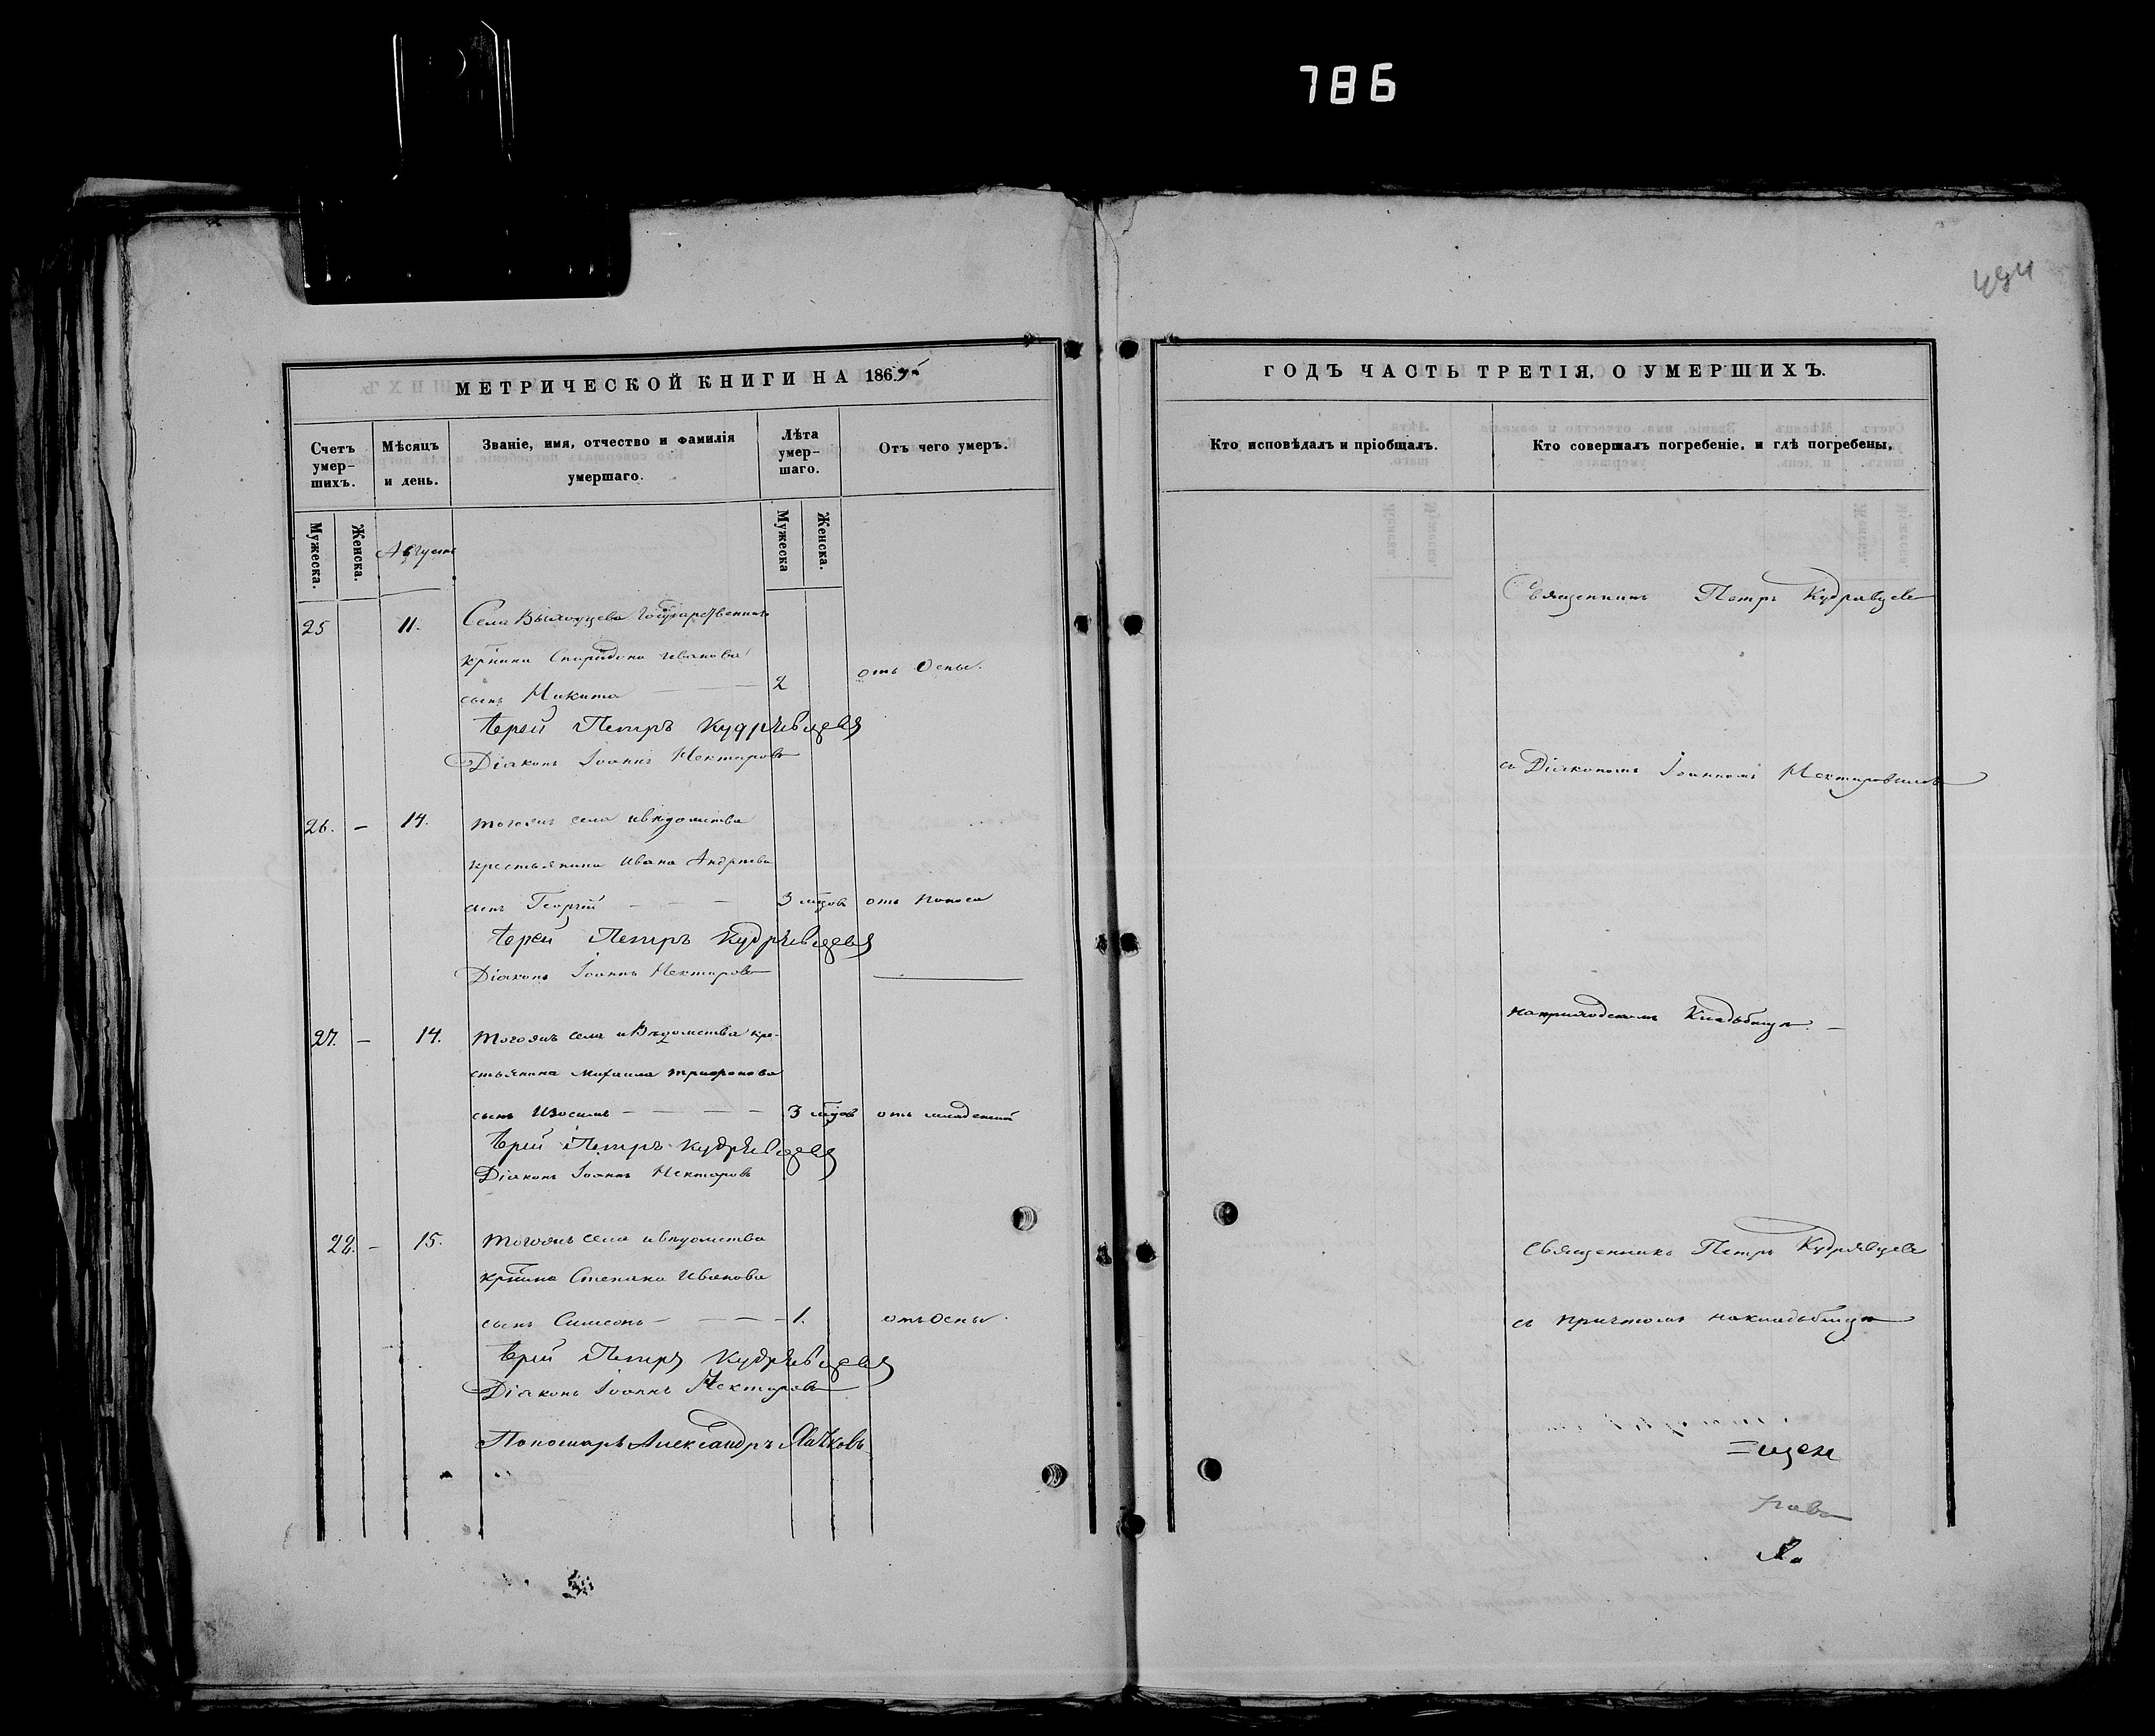 786
494
МЕТРИЧЕСКОЙ КНИГИ НА 186
Счетъ умер-шихъ.
Мѣсяцъ и день.
Званіе, имя, отчество и фамилія умершаго.
Лѣта умер-шаго.
Отъ чего умеръ.
Мужеска.
Женска.
Августъ
Мужеска
Женска.
25 11. Села Выхоцева Государственнаго
крпнина Спиридона Иванова
сынъ Никита 2 отъ Оспы.
Іерей Петръ Кудрявцевъ
Діаконъ Іоаннъ Нектаровъ
26. — 14. тогожъ села ивѣдомства
крестьянина Ивана Андреева
сынъ Георгій 3 мцовъ отъ поноса
Іерей Петръ Кудрявцевъ
Діаконъ Іоаннъ Нектаровъ
27. — 14. Тогожъ села иВѣдомства кре-
стьянина Михаила
сынъ Изосимъ 3 мцовъ отъ младенской
Іерей Петръ Кудрявцевъ
Діаконъ Іоаннъ Нектаровъ
28. — 15. Тогожъ села ивѣдомства
крпнина Степана Иванова
сынъ Симеонъ 1. отъ Оспы.
Іерей Петръ Кудрявцевъ
Діаконъ Іоаннъ Нектаровъ
Пономарь Александръ
ГОДЪ ЧАСТЬ ТРЕТІЯ, О УМЕРШИХЪ.
Кто исповѣдалъ и пріобщалъ.
Кто совершалъ погребеніе, и гдѣ погребены.
Священникъ Петръ Кудрявцевъ
съ Діакономъ Іоанномъ Нектаровымъ
наприходскомъ Кладбищѣ. —
Священникъ Петръ Кудрявцевъ
съ причтомъ накладбищѣ